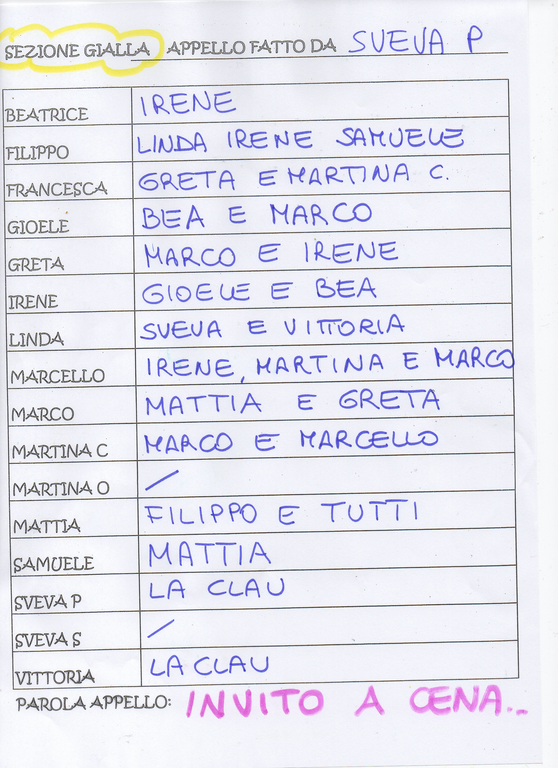 SEZIONE GIALLA APPELLO FATTO DA SVEVA P
BEATRICE IRENE
FILIPPO LINDA IRENE SAMUELE
FRANCESCA GRETA E MARTINA C.
GIOELE BEA E MARCO
GRETA MARCO E IRENE
IRENE GIOELE E BEA
LINDA SVEVA E VITTORIA
MARCELLO IRENE, MARTINA E MARCO
MARCO MATTIA E GRETA
MARTINA C MARCO E MARCELLO
MARTINA O /
MATTIA FILIPPO E TUTTI
SAMUELE MATTIA
SVEVA P LA CLAU
SVEVA S /
VITTORIA LA CLAU
PAROLA APPELLO: INVITO A CENA...